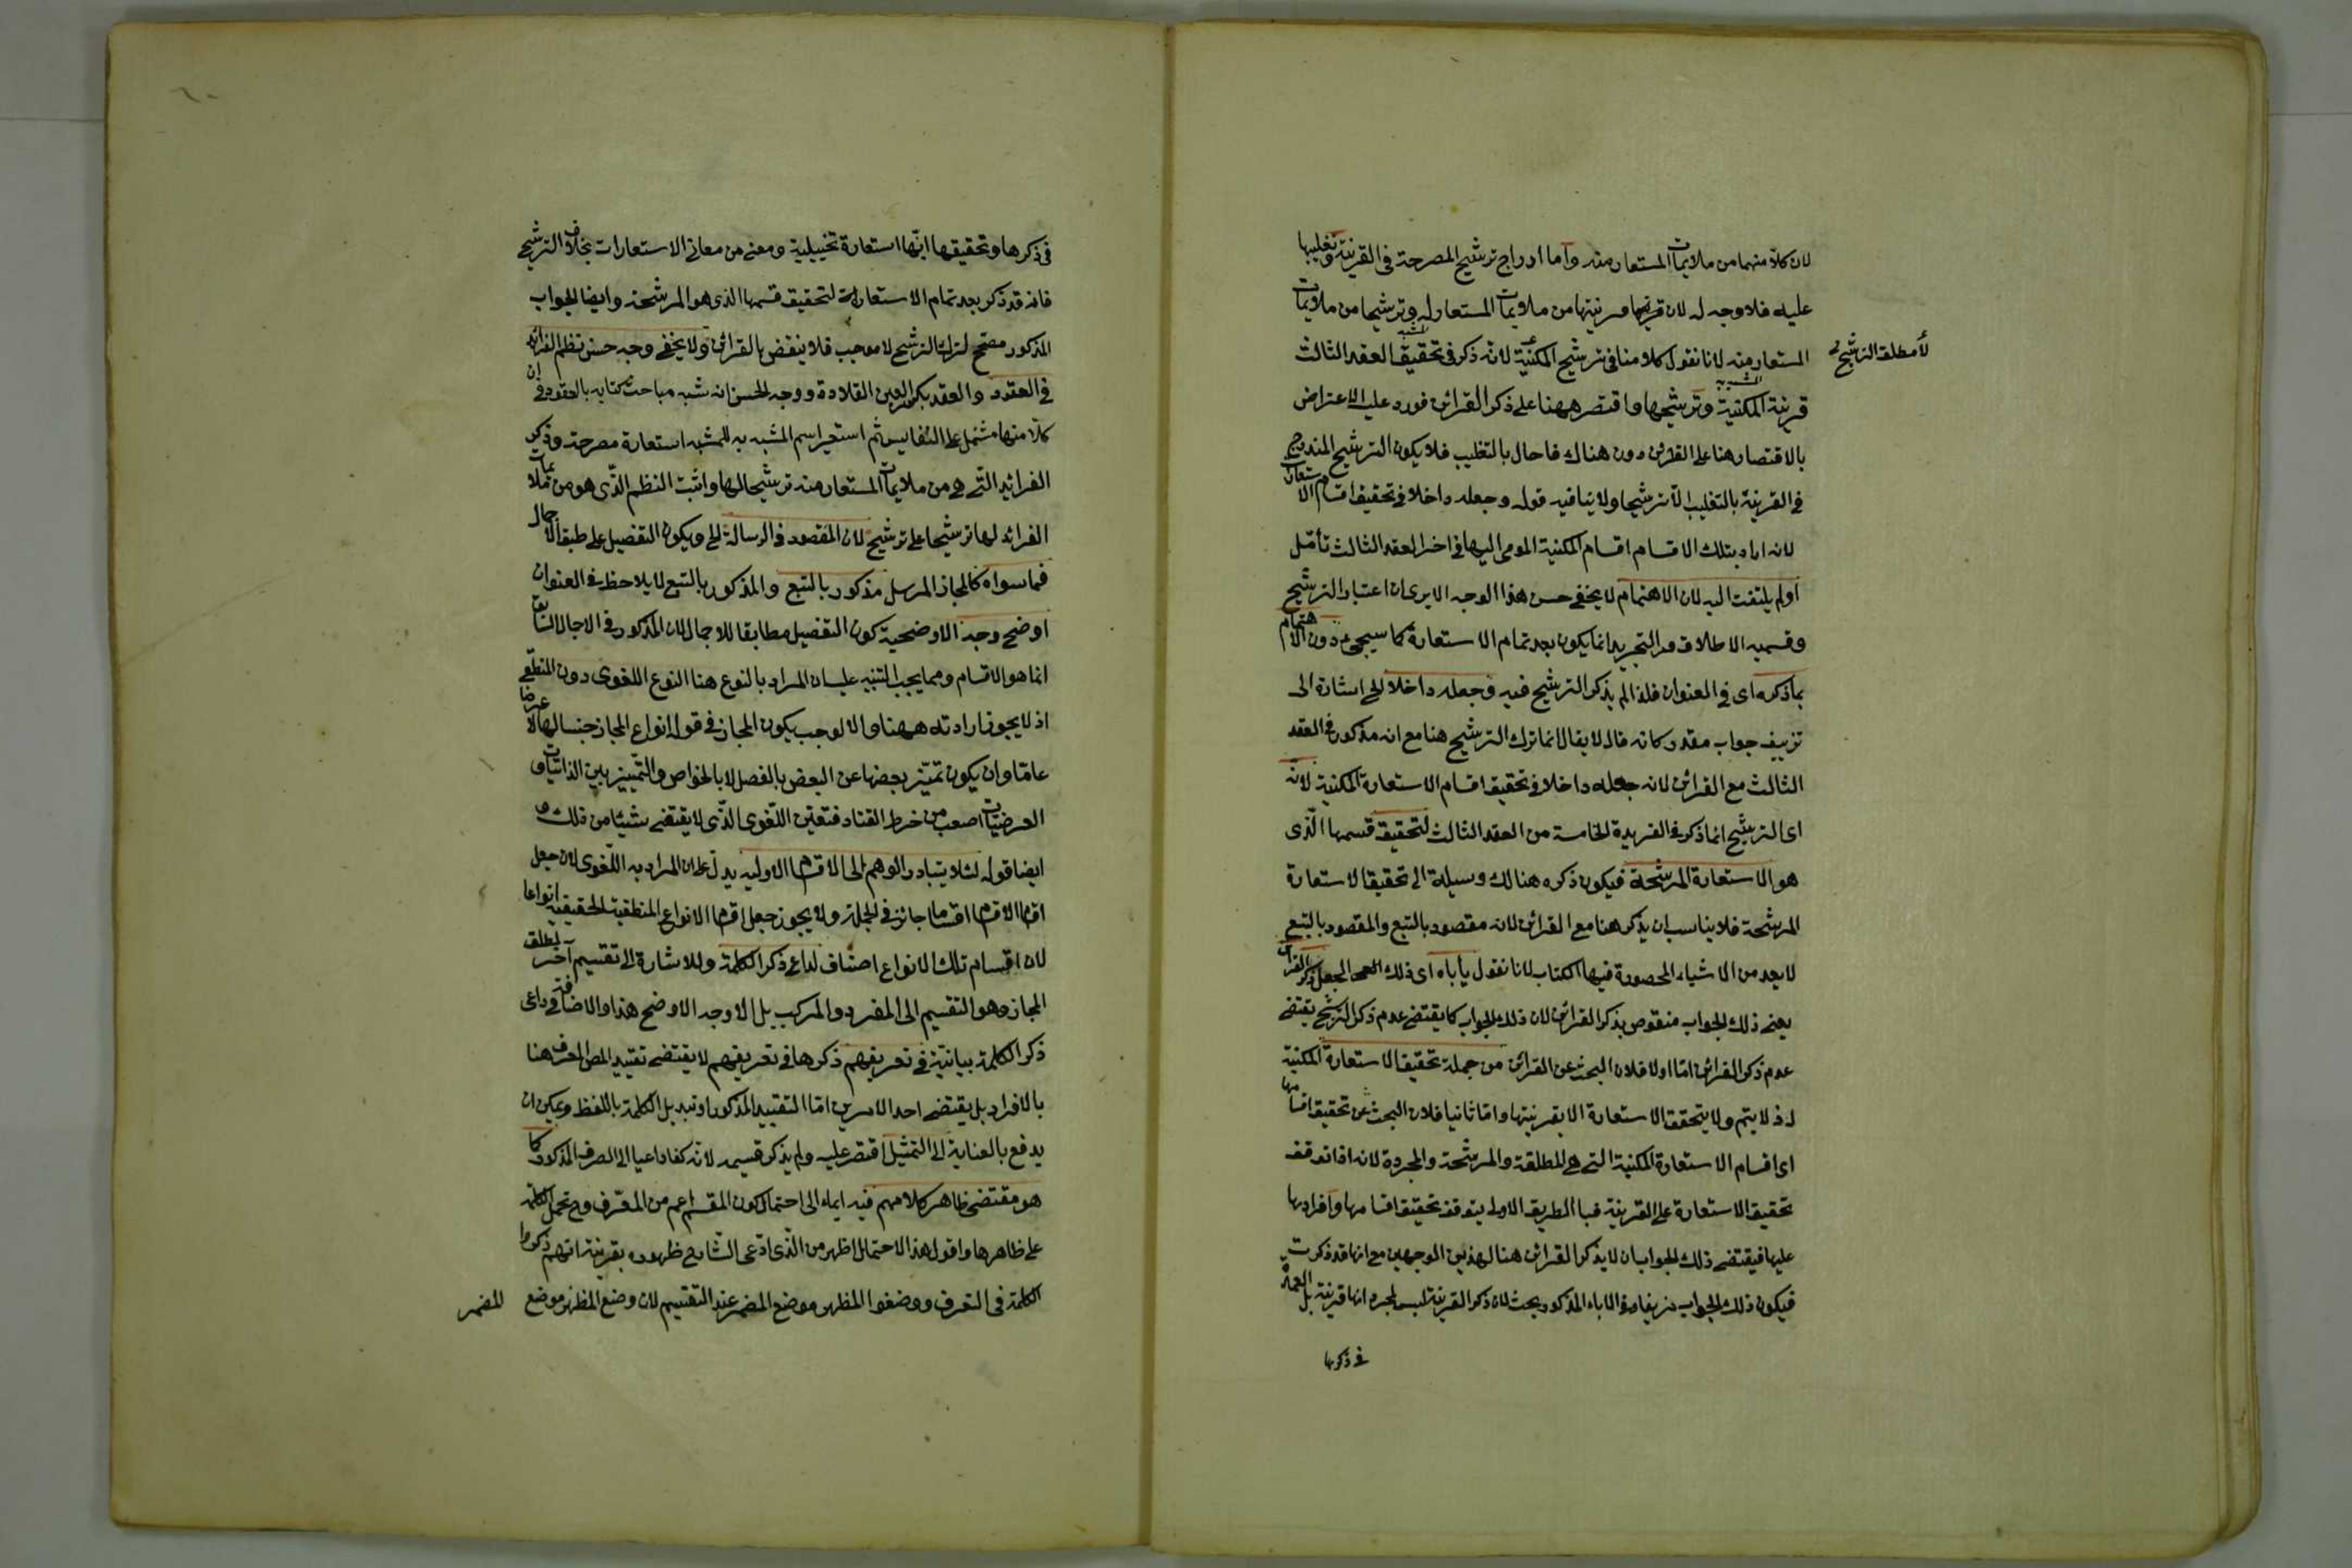 لان كلا منهما من ملايمات المستعار منه واما ادراج ترشيح المصرحة في القرينة وتغليبها
عليه فلا وجه له لان قرينتها من ملايمات المستعار له وترشيحها من ملايمات
المستعار منه لانا نقول كلامنا في ترشيح المكنية لانه ذكر في تحقيق العقد الثالث
لا مطلق الترشيح
قرينة المكنية وترشيحها واقتصر ههنا على ذكر القرائن فورد عليه الاعتراض
بالاقتصار هنا على القرائن دون هناك فاحال بالتغليب فلا يكون الترشيح المندرج
في القرينة بالتغليب الا ترشيحها ولا ينافيه قوله وجعله داخلا في تحقيق اقسام الاستعارة
لانه اراد بتلك الاقسام اقسام المكنية المومى اليها في اخر العقد الثالث تأمل
او لم يلتفت اليه لان الاهتمام لا يخفى حسن هذا الوجه الا يرى ان اعتبار الترشيح
وقسميه الاطلاق والتجريد انما يكون بعد تمام الاستعارة كما سيجيء دون الاهتمام
بما ذكره اي في العنوان فلذا لم يذكر الترشيح فيه وجعله داخلا الخ اشارة الى
تزييف جواب مقدر كانه قال لا يقال انما ترك الترشيح هنا مع انه مذكور في العقد
الثالث مع القرائن لانه جعله داخلا في تحقيق اقسام الاستعارة المكنية لانه
اي الترشيح انما ذكر في الفريدة الخامسة من العقد الثالث لتحقيق قسمها الذي
هو الاستعارة المرشحة فيكون ذكره هنالك وسيلة الى تحقيق الاستعارة
المرشحة فلا يناسب ان يذكر هنا مع القرائن لانه مقصود بالتبع والمقصود بالتبع
لا يعد من الاشياء المحصورة فيها الكتاب لانا نقول يأباه اي ذلك الجعل ذكر القرائن
يعني ذلك الجواب منقوض بذكر القرائن لان ذلك الجواب كما يقتضي عدم ذكر الترشيح يقتضي
عدم ذكر القرائن اما اولا فلان البحث عن القرائن من جملة تحقيق الاستعارة المكنية
اذ لا يتم ولا يتحقق الاستعارة الا بقرينتها واما ثانيا فلان البحث عن تحقيق اقسامها
اي اقسام الاستعارة المكنية التي هي المطلقة والمرشحة والمجردة لانه اذا توقف
تحقيق الاستعارة على القرينة فبالطريق الاولى يتوقف تحقيق اقسامها وافرادها
عليها فيقتضي ذلك الجواب ان لا يذكر القرائن هنا لهذين الوجهين مع انها قد ذكرت
فيكون ذلك الجواب مزيفا وفي الاباء المذكور بحث لان ذكر القرينة ليس لمجرد انها قرينة بل العمدة
في ذكرها
في ذكرها وتحقيقها انها استعارة تخييلية ومعنى من معاني الاستعارات بخلاف الترشيح
فانه قد ذكر بعد تمام الاستعارة لتحقيق قسمها الذي هو المرشحة وايضا الجواب
المذكور مصحح لترك الترشيح لا موجب فلا ينقض بالقرائن ولا يخفى وجه حسن نظم الفرائد
في العقود والعقد بكسر العين القلادة ووجه الحسن انه شبه مباحث كتابه بالعقود في ان
كلا منها مشتمل على النفايس ثم استعير اسم المشبه به للمشبه استعارة مصرحة وذكر
الفرائد التي هي من ملايمات المستعار منه ترشيحا لها واثبت النظم الذي هو من ملايمات
الفرائد لها ترشيحا على ترشيح لان المقصود في الرسالة الخ ويكون التفصيل على طبق الاجمال
فما سواه كالمجاز المرسل مذكور بالتبع والمذكور بالتبع لا يلاحظ في العنوان
اوضح وجه الاوضحية كون التفصيل مطابقا للاجمال لان المذكور في الاجمال السابق
انما هو الاقسام ومما يجب التنبيه عليه ان المراد بالنوع هنا النوع اللغوي دون المنطقي
اذ لا يجوز ارادته ههنا والا لوجب يكون المجاز في قوله انواع المجاز جنسا لها لا عرضا
عاما وان يكون تميز بعضها عن البعض بالفصل لا بالخواص والتمييز بين الذاتيات و
العرضيات اصعب من خرط القتاد فتعين اللغوي الذي لا يقتضي شيئا من ذلك و
ايضا قوله لئلا يتبادر الوهم الى الاقسام الاولية يدل على ان المراد به اللغوي لان جعل
اقسام الاقسام اقساما جائز في الجملة ولا يجوز جعل اقسام الانواع المنطقية الحقيقية انواعا
لان اقسام تلك الانواع اصناف لداعي ذكر الكلمة وللاشارة الى تقسيم آخر لمطلق
المجاز وهو التقسيم الى المفرد والمركب بل الاوجه الاوضح هذا والاضافة في داعي
ذكر الكلمة بيانية في تعريفهم ذكرها في تعريفهم لا يقتضي تقييد المص المعرف هنا
بالافراد بل يقتضي احد الامرين اما التقييد المذكور او تبديل الكلمة باللفظ ويمكن ان
يدفع بالعناية الى التمثيل اقتصر عليه ولم يذكر قسيمه لانه كفى داعيا الى الصرف المذكور كما
هو مقتضى ظاهر كلامهم فيه ايماء الى احتمال كون المقسم اعم من المعرف وح تحمل الكلمة
على ظاهرها واقول هذا الاحتمال اظهر من الذي ادعى الشارح ظهوره بقرينة انهم ذكروا
الكلمة في التعريف ووضعوا المظهر موضع المضمر عند التقسيم لان وضع المظهر موضع
المضمر